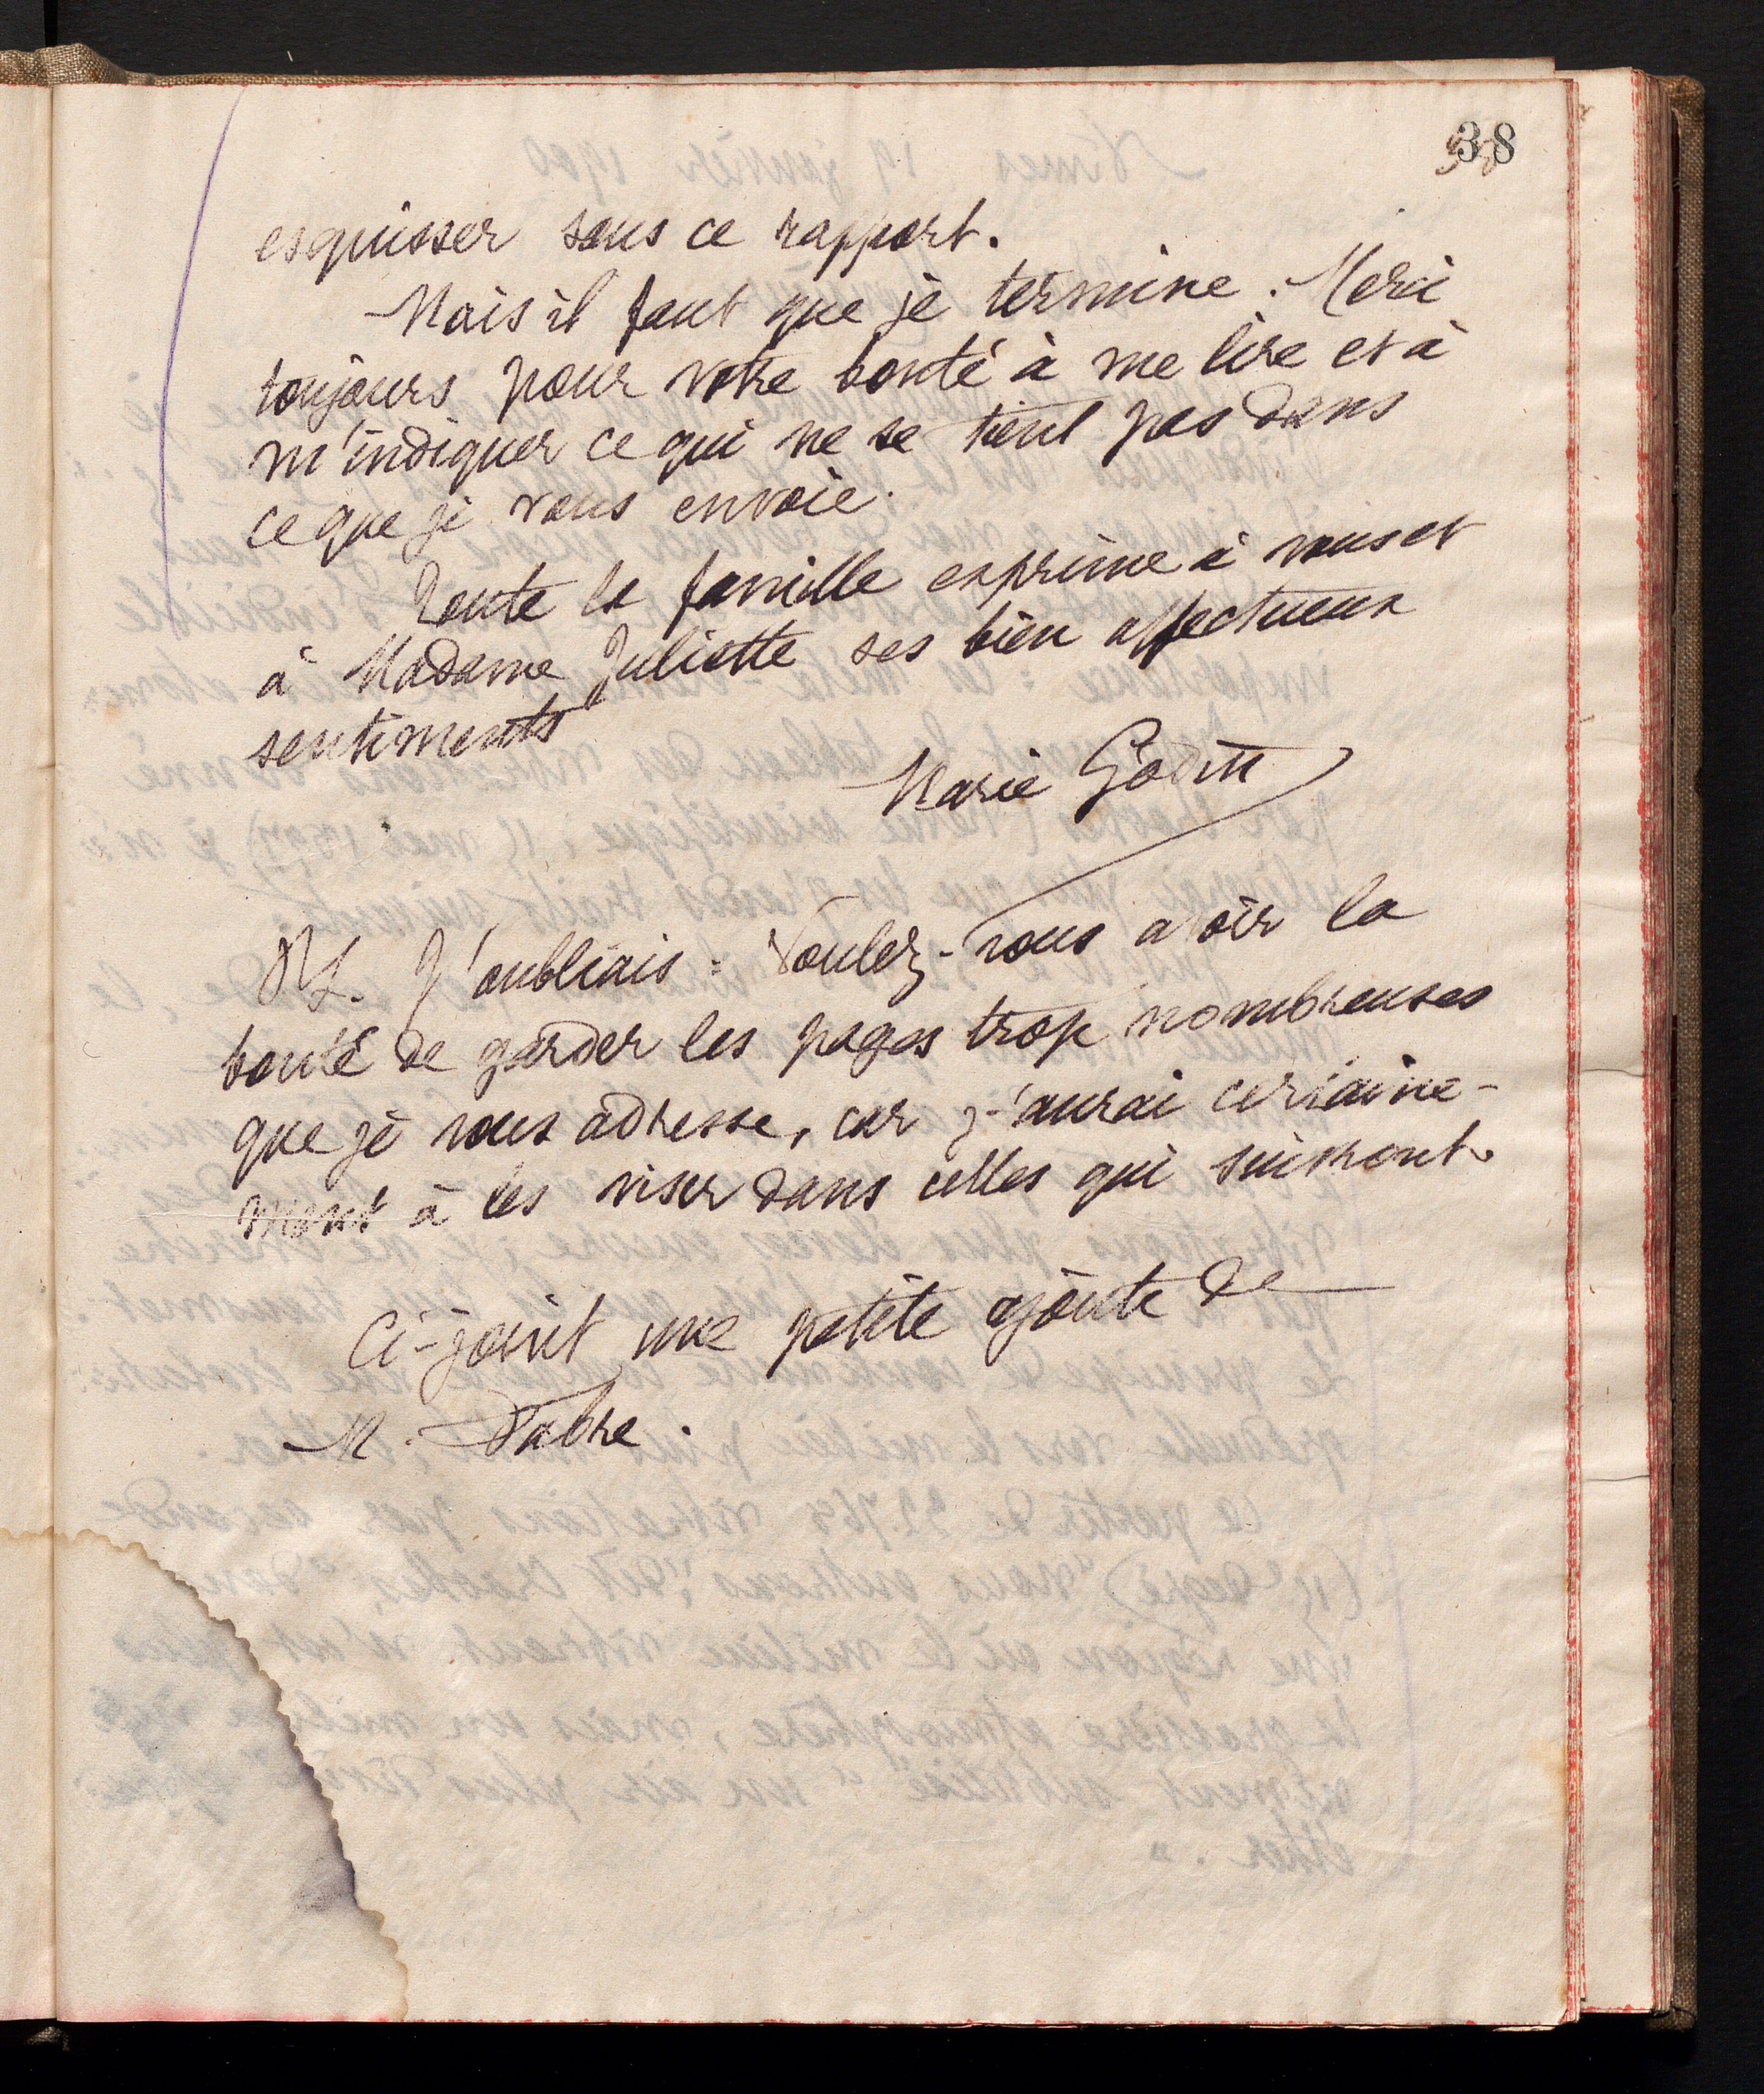 38
esquisser sous ce rapport.
Mais il faut que je termine. Merci
toujours pour votre bonté à me lire et à
m'indiquer ce qui ne se tient pas dans
ce que je vous envoie.
Toute la famille exprime à vous et
à Madame Juliette ses bien affectueux
sentiments
Marie Godin
J'oubliais : Voulez-vous avoir la
bonté de garder les pages trop nombreuses
que je vous adresse, car j'aurai certaine-
ment à les viser dans celles qui suivront.
Ci-joint une petite ajoute de
M. Fabre.